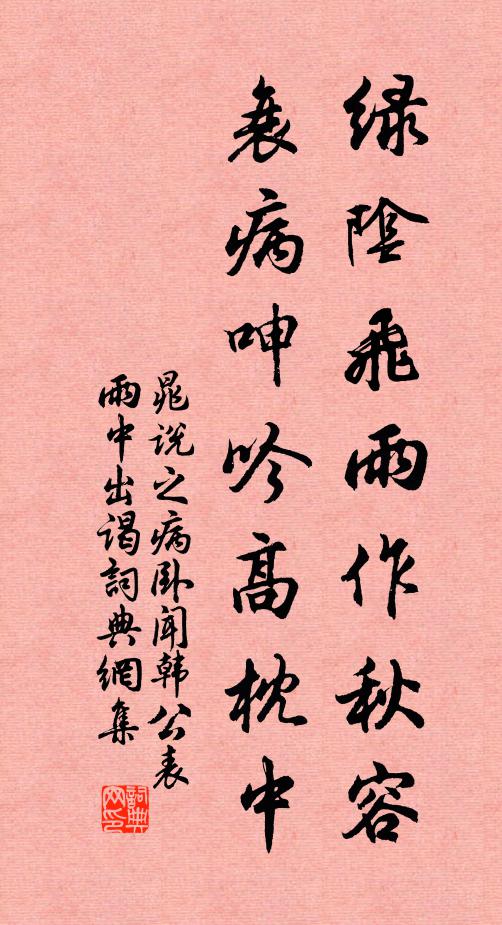 绿陰飛雨作秋容
衰病呻吟高枕中
晁说之病卧闻韩公表
雨中出谒詞典網集
詞典網印